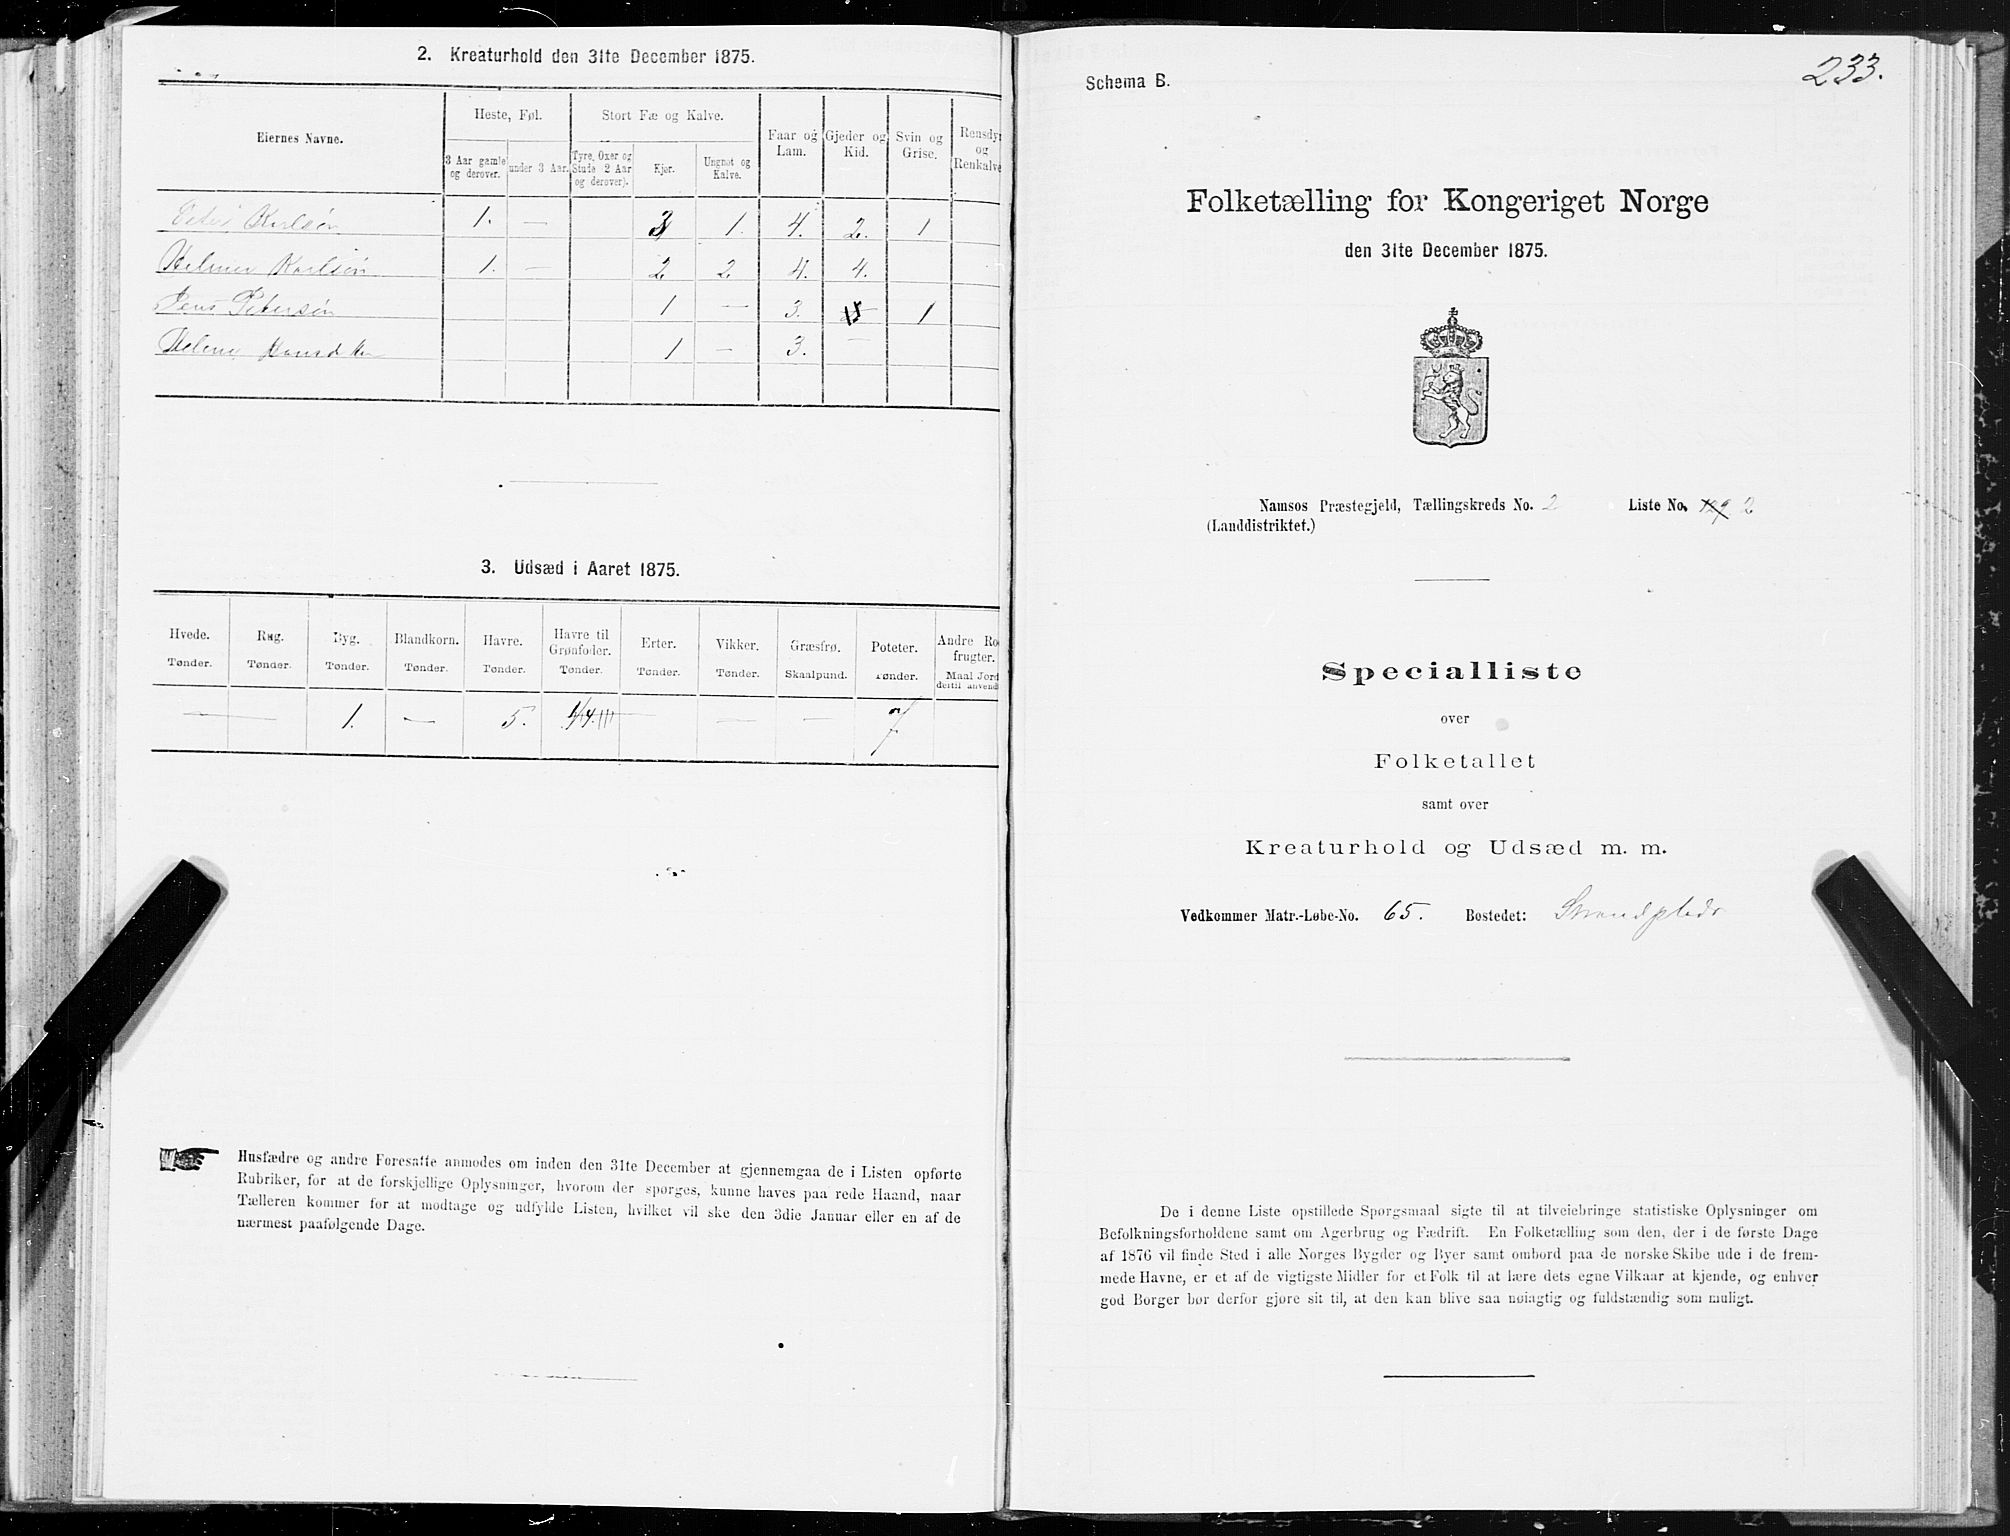 2. Kreaturhold den 31te December 1875.
Eiernes Navne.
Heste, Føl.
Stort Fæ og Kalve.
Faar og Lam.
Gjeder og Kid.
Svin og Grise.
Rensdyr og Renkalve
3 Aar gamle og derover.
under 3 Aar.
Tyre, Oxer og Stude 2 Aar og derover).
Kjør.
Ungnøt og Kalve.
Peter Karlsøn 1. — 3 1. 4. 2. 1
Helmer Karlsøn 1. — 2 2 4. 4.
Jens Petersøn 1 — 3. 1
Helene 1 — 3. —
3. Udsæd i Aaret 1875.
Hvede. Rug. Byg. Blandkorn. Havre. Havre til Grønfoder. Erter. Vikker. Græsfrø. Poteter. Andre Ro frugter.
Tønder. Tønder. Tønder. Tønder. Tønder. Tønder. Tønder. Tønder. Skaalpund. Tønder. Maal Jord dertil anvend
— — 1. — 5. 1/4 — — — 7
Husfædre og andre Foresatte anmodes om inden den 31te December at gjennemgaa de i Listen opførte
Rubriker, for at de forskjellige Oplysninger, hvorom der spørges, kunne haves paa rede Haand, naar
Tælleren kommer for at modtage og udfylde Listen, hvilket vil ske den 3die Januar eller en af de
nærmest paafølgende Dage.
233.
Schema B.
Folketælling for Kongeriget Norge
den 31te December 1875.
Namsos Præstegjeld, Tællingskreds No. 2 Liste No. 129 2
(Landdistriktet.)
Specialliste
over
Folketallet
samt over
Kreaturhold og Udsæd m. m.
Vedkommer Matr.-Løbe-No. 65. Bostedet: Strandplads
De i denne Liste opstillede Spørgsmaal sigte til at tilveiebringe statistiske Oplysninger om
Befolkningsforholdene samt om Agerbrug og Fædrift. En Folketælling som den, der i de første Dage
af 1876 vil finde Sted i alle Norges Bygder og Byer samt ombord paa de norske Skibe ude i de frem-
mede Havne, er et af de vigtigste Midler for et Folk til at lære dets egne Vilkaar at kjende, og enhver
god Borger bør derfor gjøre sit til, at den kan blive saa nøiagtig og fuldstændig som muligt.